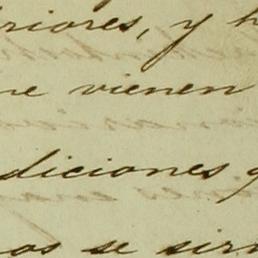 riores, y h
ne vienen
diciones q
os se sir